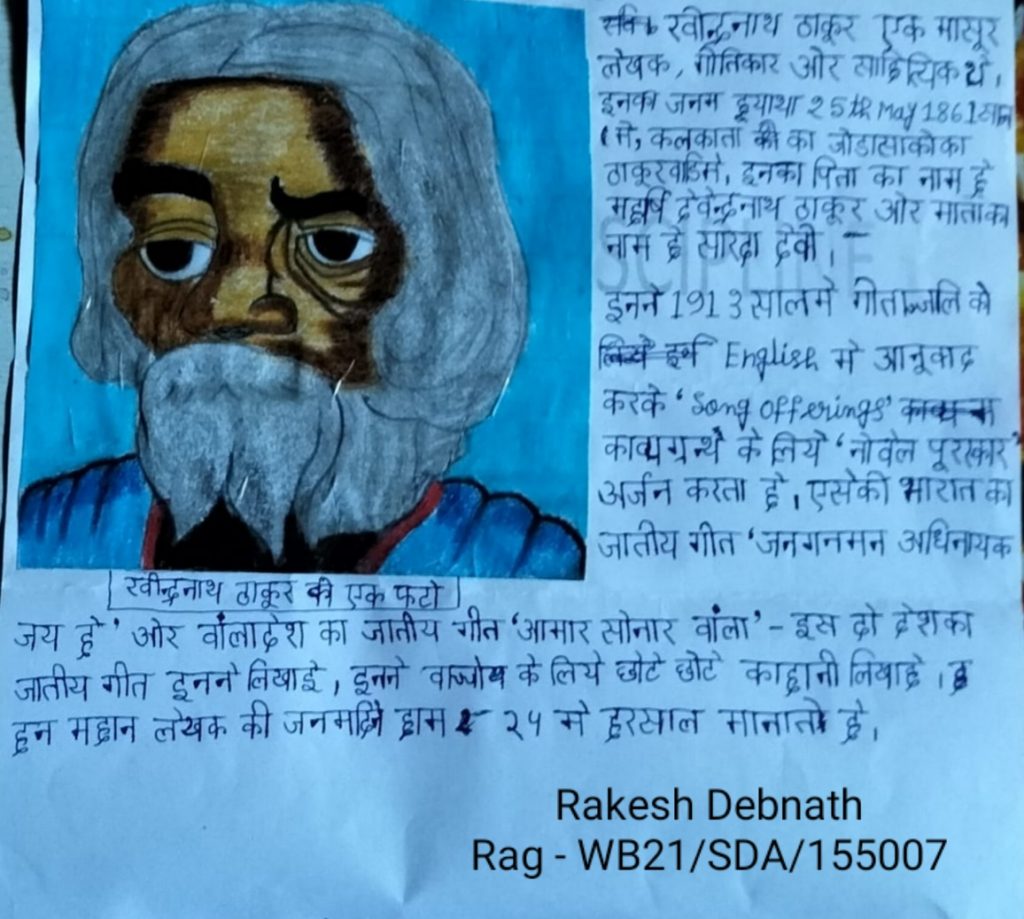 रवीन्द्रनाथ ठाकूर एक मासूर
लेखक, गीतिकार ओर साहित्यिक थे।
इनका जनम हूयाथा 25th May 1861 साल
मे, कलकाता का जोडासाकोका
ठाकूरवाडिमे, इनका पिता का नाम हे
महर्षि देवेन्द्रनाथ ठाकूर ओर माताका
नाम हे सारदा देवी।
इनने 1913 सालमे गीताञ्जलि को
English मे आनूवाद
करके 'Song Offerings'
काव्यग्रन्थे के लिये 'नोवेल पूरस्कार'
अर्जन करता हे। एसेकी भारात का
जातीय गीत 'जनगनमन अधिनायक
रवीन्द्रनाथ ठाकूर की एक फटो
जय हे' ओर वांलादेश का जातीय गीत 'आमार सोनार वांला' - इस दो देशका
जातीय गीत इनने लिखाहे, इनने के लिये छोटे छोटे काहानी लिखाहे।
इन महान लेखक की जनमदिन हाम २५ मे हरसाल मानाते हे।
Rakesh Debnath
Rag - WB21/SDA/155007